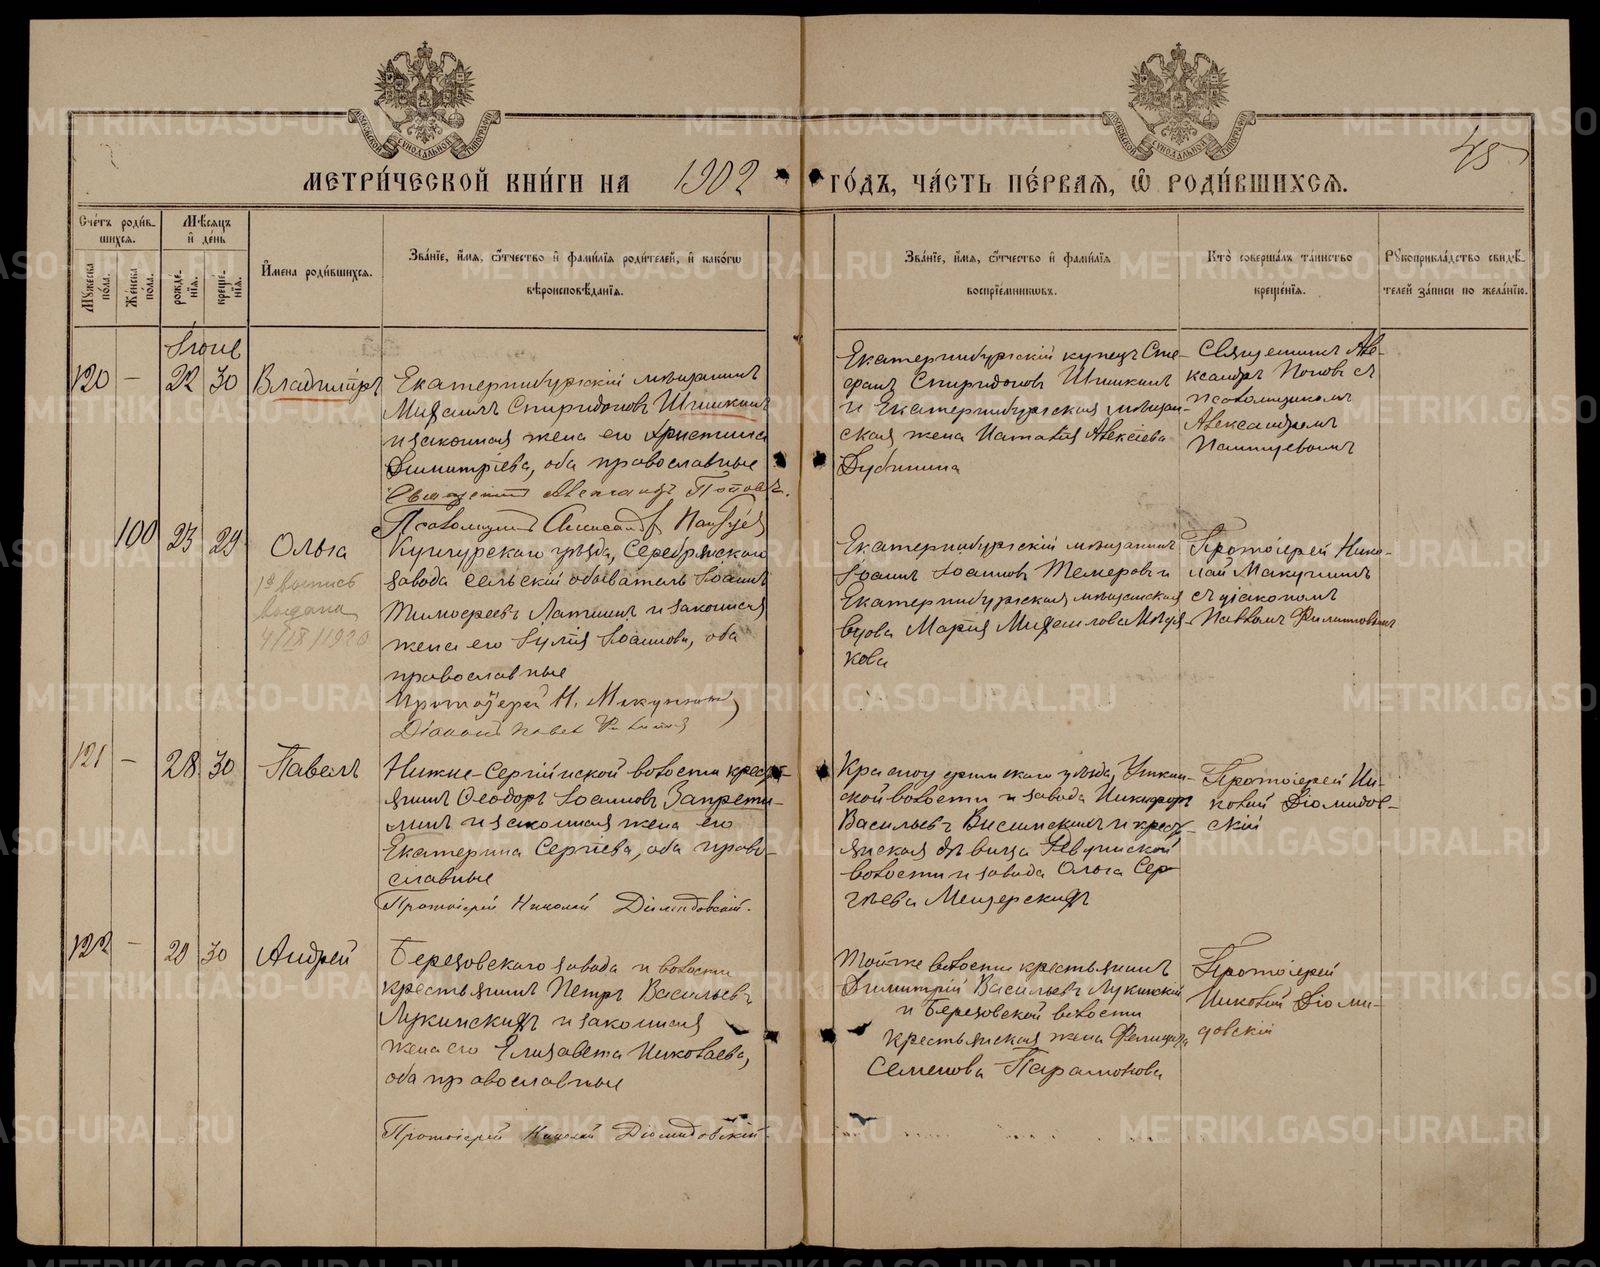 МЕТРИ́ЧЕСКОЙ КНИ́ГИ НА 1902 ГО́ДЪ, ЧА́СТЬ ПЕ́РВАЯ, Ѡ҆ РОДИ́ВШИХСЯ.
45
Сче́тъ роди́в-
шихся.
Мꙋ́жеска по́ла.
Же́нска по́ла.
Мѣ́сяцъ
и҆ де́нь
рожде́-
нїя.
креще́-
нїя.
И҆мена роди́вшихся.
Зва́нїе, и҆́мя, ѻ҆́тчество и҆ фами́лїя роди́телей, и҆ како́гѡ
вѣроисповѣ́данїя.
Зва́нїе, и҆́мя, ѻ҆́тчество и҆ фами́лїя
воспрїе́мникѡвъ.
Кто̀ соверша́лъ та́инство
креще́нїя.
Рꙋкоприкла́дство свидѣ́-
телей за́писи по жела́нїю.
Іюнь
120 — 22 30 Владиміръ
Екатеринбургскій мѣщанинъ
Михаилъ Спиридоновъ Шишкинъ
и законная жена его Христина
Димитріева, оба православные
Священникъ Александръ Поповъ.
Псаломщикъ Александръ
Екатеринбургскій купецъ Сте-
фанъ Спиридоновъ Шишкинъ
и Екатеринбургская мѣщан-
ская жена Наталія Алексіева
Дубинина
Священникъ Але-
ксандръ Поповъ съ
псаломщикомъ
Александромъ
100 23 29 Ольга
1я выпись
выдана
4/IX 1920
Кунгурскаго уѣзда, Серебрянскаго
завода сельскій обыватель Іоаннъ
Тимоѳеевъ Латышъ и законная
жена его Іулія Іоаннова, оба
православные
Протоіерей Н. Макушинъ
Діаконъ Павелъ
Екатеринбургскій мѣщанинъ
Іоаннъ Іоанновъ Темеровъ и
Екатеринбургская мѣщанская
вдова Марія Михаилова
кова
Протоіерей Нико-
лай Макушинъ
съ діакономъ
Павломъ
121 — 28 30 Павелъ
Нижне-Сергійнской волости кресть-
янинъ Ѳеодоръ Іоанновъ Запрети-
линъ и законная жена его
Екатерина Сергіева, оба право-
славные
Протоіерей Николай Діомидовскій.
Красноуфимскаго уѣзда, Уткин-
ской волости и завода Никифоръ
Васильевъ Висимскихъ и кресть-
янская дѣвица Ревдинской
волости и завода Ольга Сер-
гѣева Мещерскихъ
Протоіерей Ни-
колай Діомидов-
скій
122 — 29 30 Андрей
Березовскаго завода и волости
крестьянинъ Петръ Васильевъ
Лукинскихъ и законная
жена его Елизавета Николаева,
оба православные
Протоіерей Николай Діомидовскій.
Той же волости крестьянинъ
Димитрій Васильевъ Лукинскій
и Березовской волости
крестьянская жена Фелицата
Семенова Парамонова
Протоіерей
Николай Діоми-
довскій